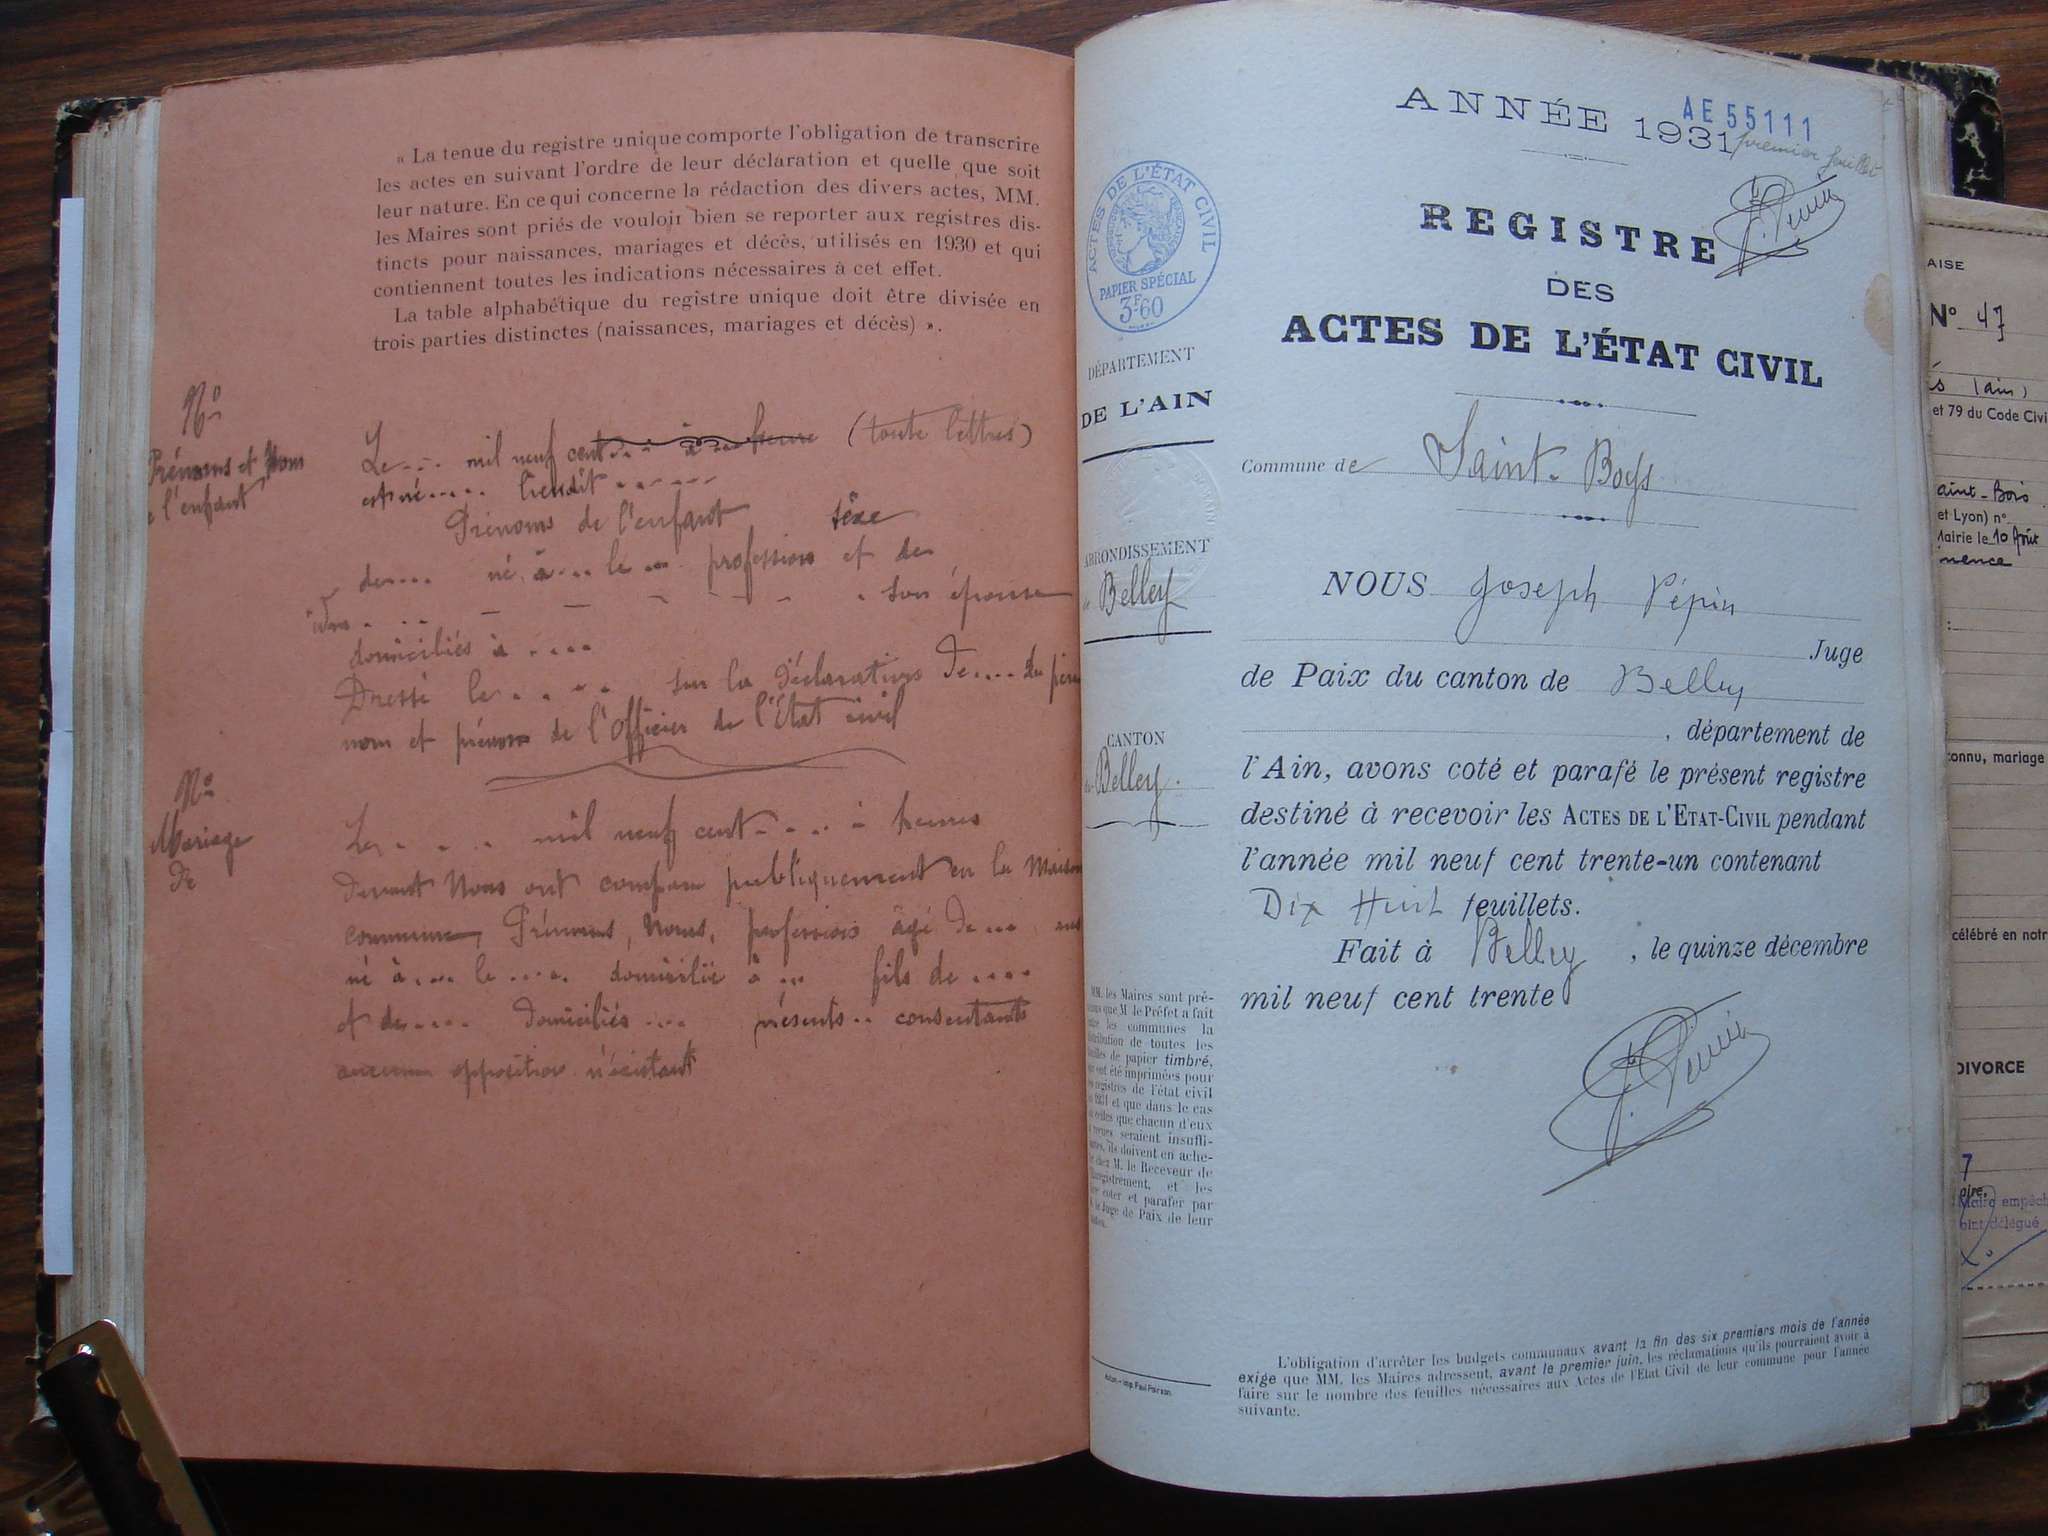 « La tenue du registre unique comporte l'obligation de transcrire
les actes en suivant l'ordre de leur déclaration et quelle que soit
leur nature. En ce qui concerne la rédaction des divers actes, MM.
les Maires sont priés de vouloir bien se reporter aux registres dis-
tincts pour naissances, mariages et décès, utilisés en 1930 et qui
contiennent toutes les indications nécessaires à cet effet.
La table alphabétique du registre unique doit être divisée en
trois parties distinctes (naissances, mariages et décès) ».
No
Prénoms et Nom
l'enfant
Le ... mil neuf cent ... à ... heure (toute lettres)
est né .....
Prénoms de l'enfant sexe
de .... né à ... le ... profession et de
son épouse
domiciliés à ....
Dressé le .... sur la déclaration de .... du père
nom et prénom de l'Officier de l'Etat civil
No
Mariage
de
Le . . . . mil neuf cent .... à heures
devant Nous ont comparu publiquement en la maison
commune, Prénoms, Noms, profession âgé de ... ans
né à ... le .... domicilié à ... fils de ....
et de .... domiciliés ... présents .. consentants
aucune opposition n'existant
ANNÉE 1931
AE 55111
premier feuillet
REGISTRE
DES
ACTES DE L'ÉTAT CIVIL
ACTES DE L'ÉTAT CIVIL
PAPIER SPÉCIAL
3F60
DÉPARTEMENT
DE L'AIN
Commune de Saint-Boys
ARRONDISSEMENT
Belley
CANTON
Belley.
NOUS Joseph Pépin
Juge
de Paix du canton de Belley
, département de
l'Ain, avons coté et parafé le présent registre
destiné à recevoir les ACTES DE L'ETAT-CIVIL pendant
l'année mil neuf cent trente-un contenant
Dix Huit feuillets.
Fait à Belley, le quinze décembre
mil neuf cent trente
J. Pépin
MM. les Maires sont pré-
que M. le Préfet a fait
les communes la
distribution de toutes les
feuilles de papier timbré,
ont été imprimées pour
registres de l'état civil
1931 et que dans le cas
celles que chacun d'eux
reçues seraient insuffi-
santes, ils doivent en ache-
chez M. le Receveur de
l'Enregistrement, et les
faire coter et parafer par
le Juge de Paix de leur
canton.
L'obligation d'arrêter les budgets communaux avant la fin des six premiers mois de l'année
exige que MM. les Maires adressent, avant le premier juin, les réclamations qu'ils pourraient avoir à
faire sur le nombre des feuilles nécessaires aux Actes de l'Etat Civil de leur commune pour l'année
suivante.
AISE
N° 47
(ain)
et 79 du Code Civi
aint-Bois
et Lyon) n°
Mairie le 10 Août
connu, mariage
célébré en notr
DIVORCE
7
Maire empêch
délégué